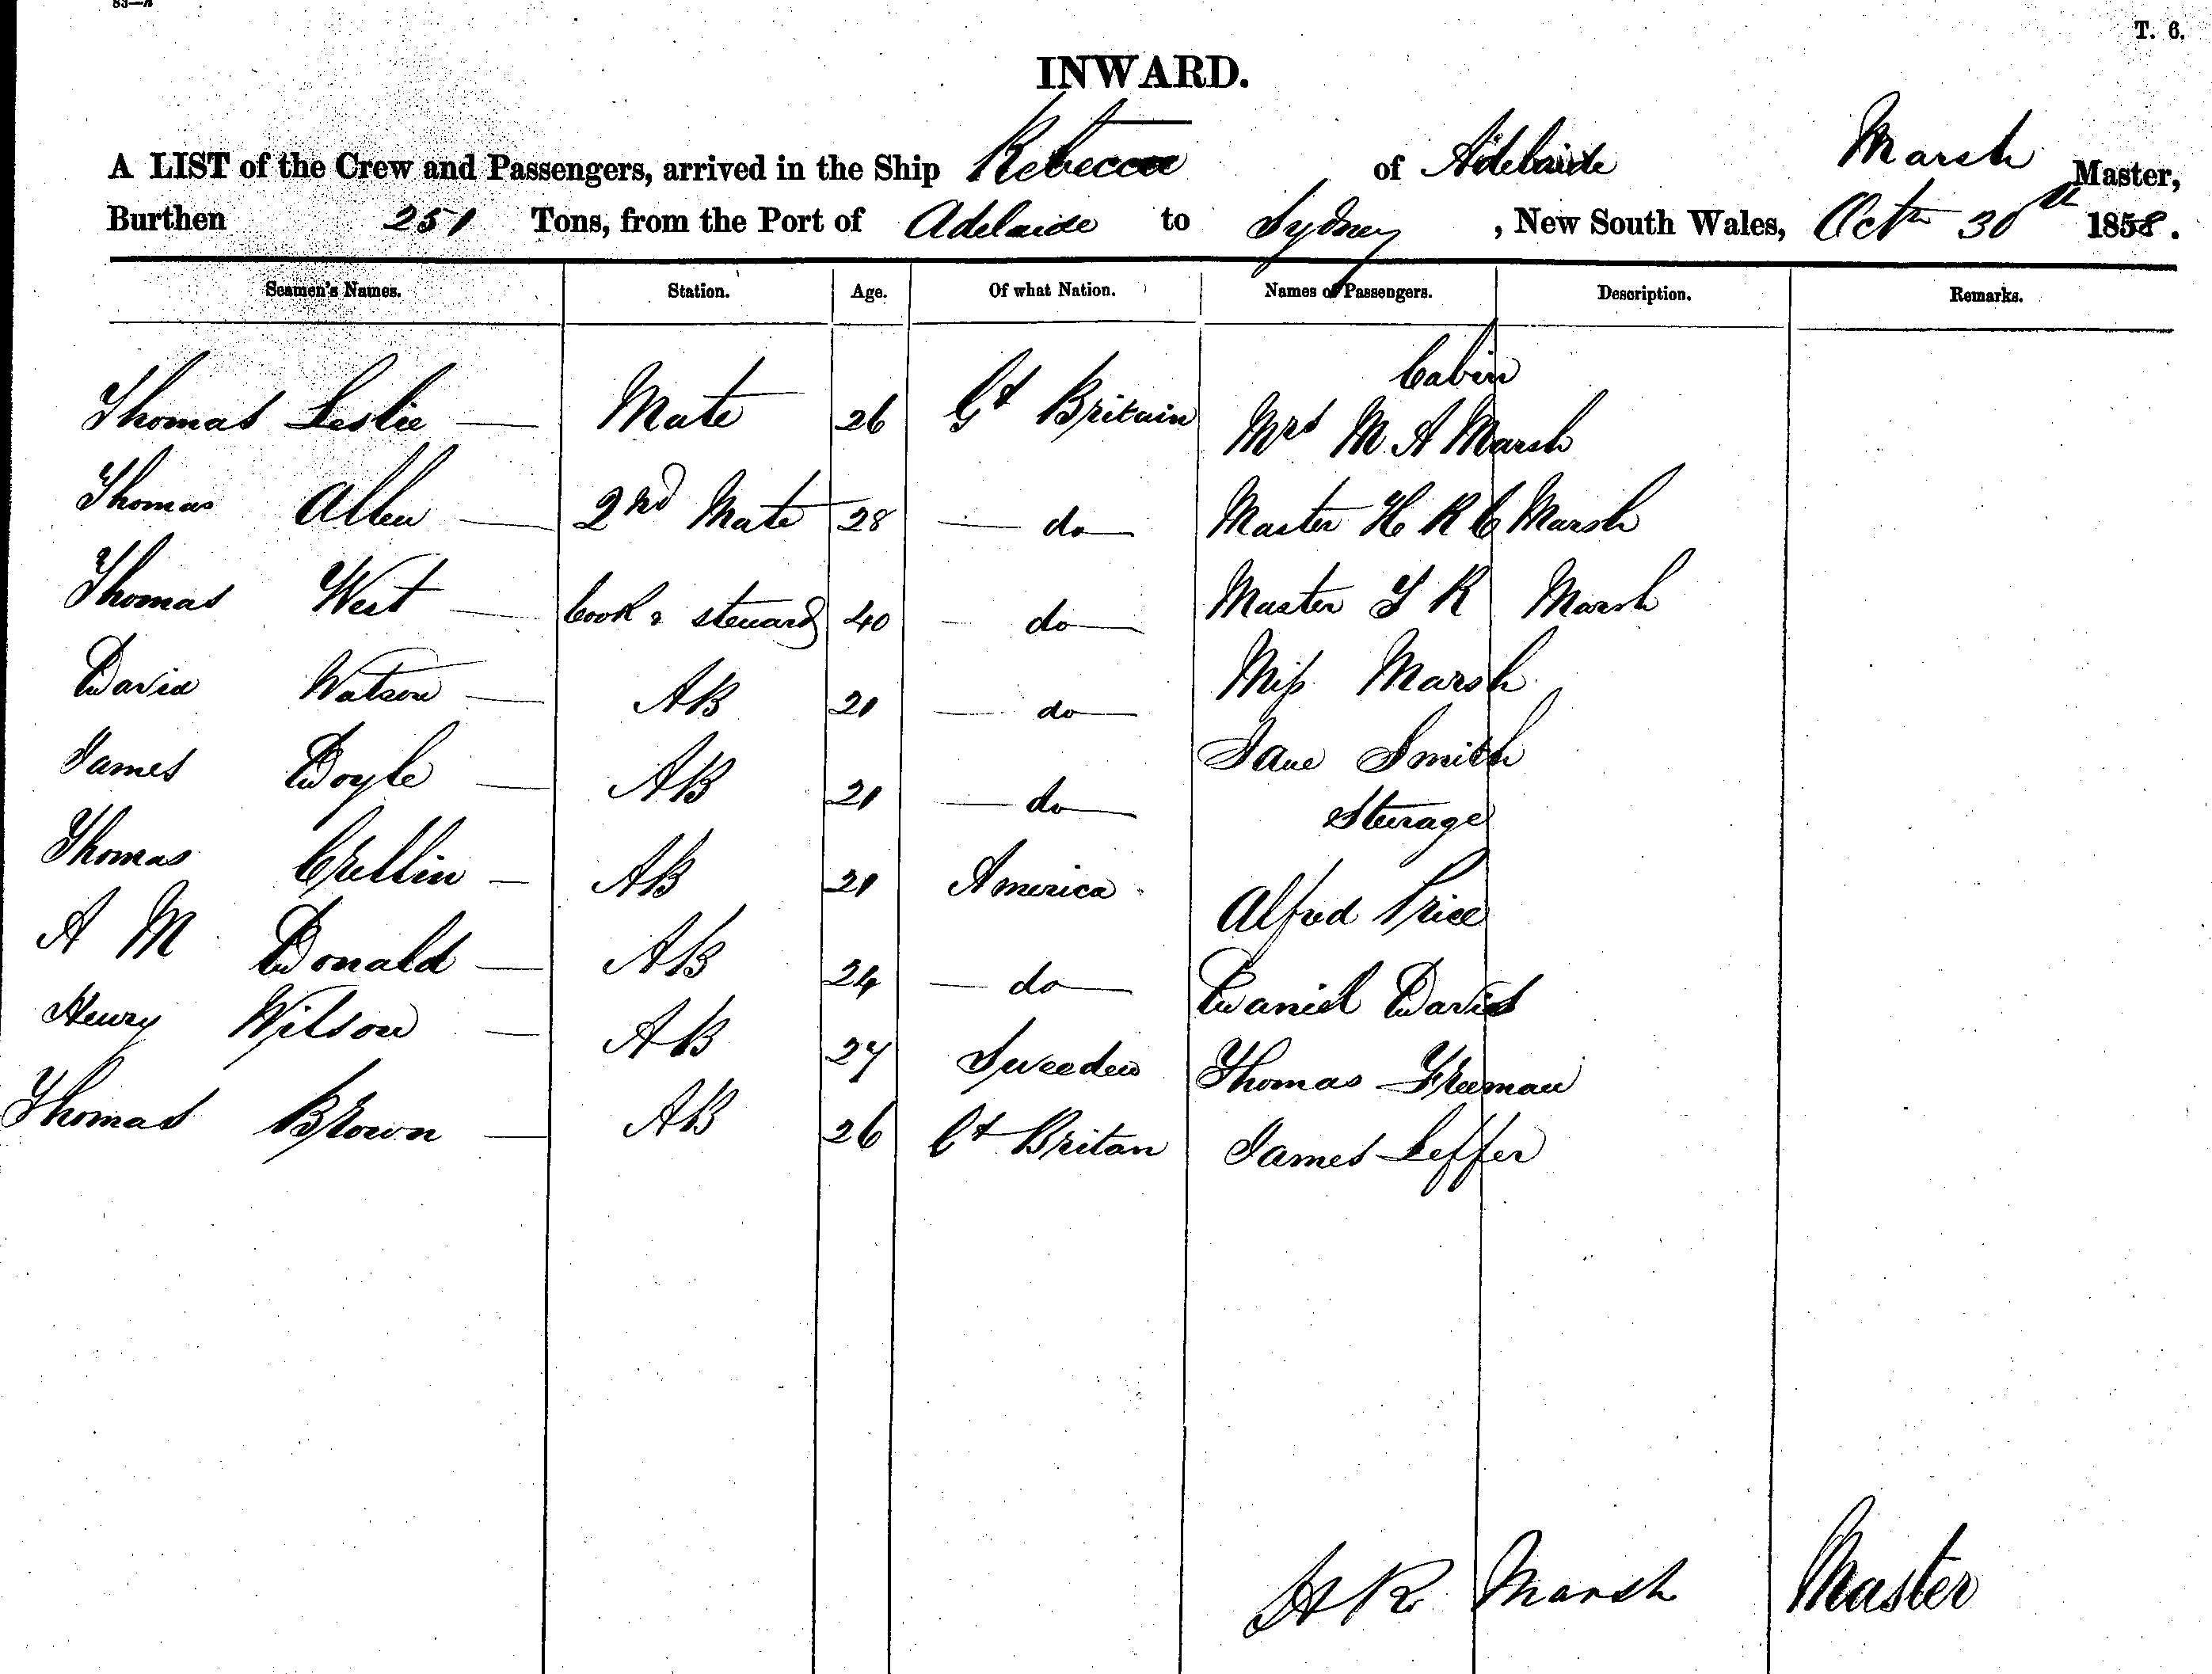 83—A
T. 6.
INWARD.
A LIST of the Crew and Passengers, arrived in the Ship Rebecca of Adelaide Marsh Master,
Burthen 251 Tons, from the Port of Adelaide to Sydney, New South Wales, Octr 30th 1858.
Seamen's Names. Station. Age. Of what Nation. Names of Passengers. Description. Remarks.
Cabin
Thomas Leslie — Mate 26 Gt Britain Mrs M A Marsh
Thomas Allen — 2nd Mate 28 — do — Master H R C Marsh
Thomas West — Cook & steward 40 — do — Master S R Marsh
David Watson — AB 21 — do — Miss Marsh
James Doyle — AB 21 — do — Jane Smith
Sterage
Thomas Crellin — AB 21 America Alfred Price
A M Donald — AB 24 — do — Daniel David
Henry Wilson — AB 27 Sweeden Thomas Freeman
Thomas Brown — AB 26 Gt Britan James Leffer
H R Marsh Master